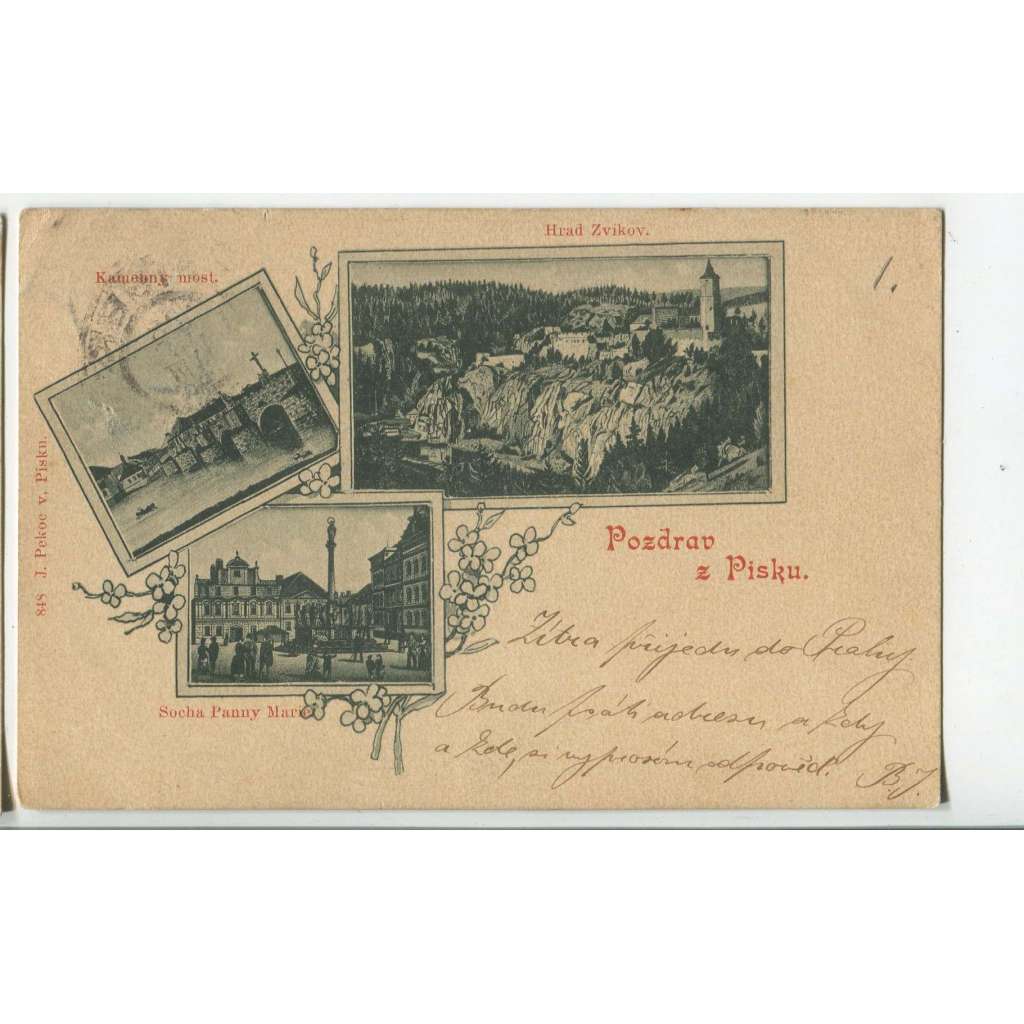 Hrad Zvikov.
1.
Kamenný most.
848 J. Pekoc v. Pisku.
Pozdrav
z Pisku.
Socha Panny Marie
Zítra přijedu do Prahy.
Budu psáti adresu a kdy
a kde, si vyprosím odpověd.
B.J.